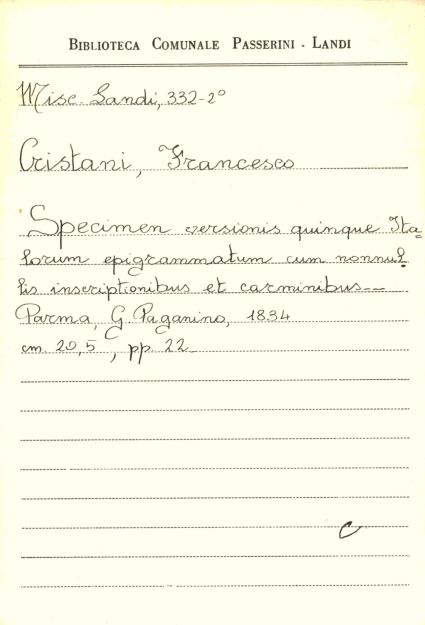 BIBLIOTECA COMUNALE PASSERINI - LANDI
Misc. Landi, 332-2°
Cristani, Francesco
Specimen versionis quinque Ita=
lorum epigrammatum cum nonnul
lis inscriptionibus et carminibus--
Parma, G. Paganino, 1834
cm. 20,5, pp. 22
C